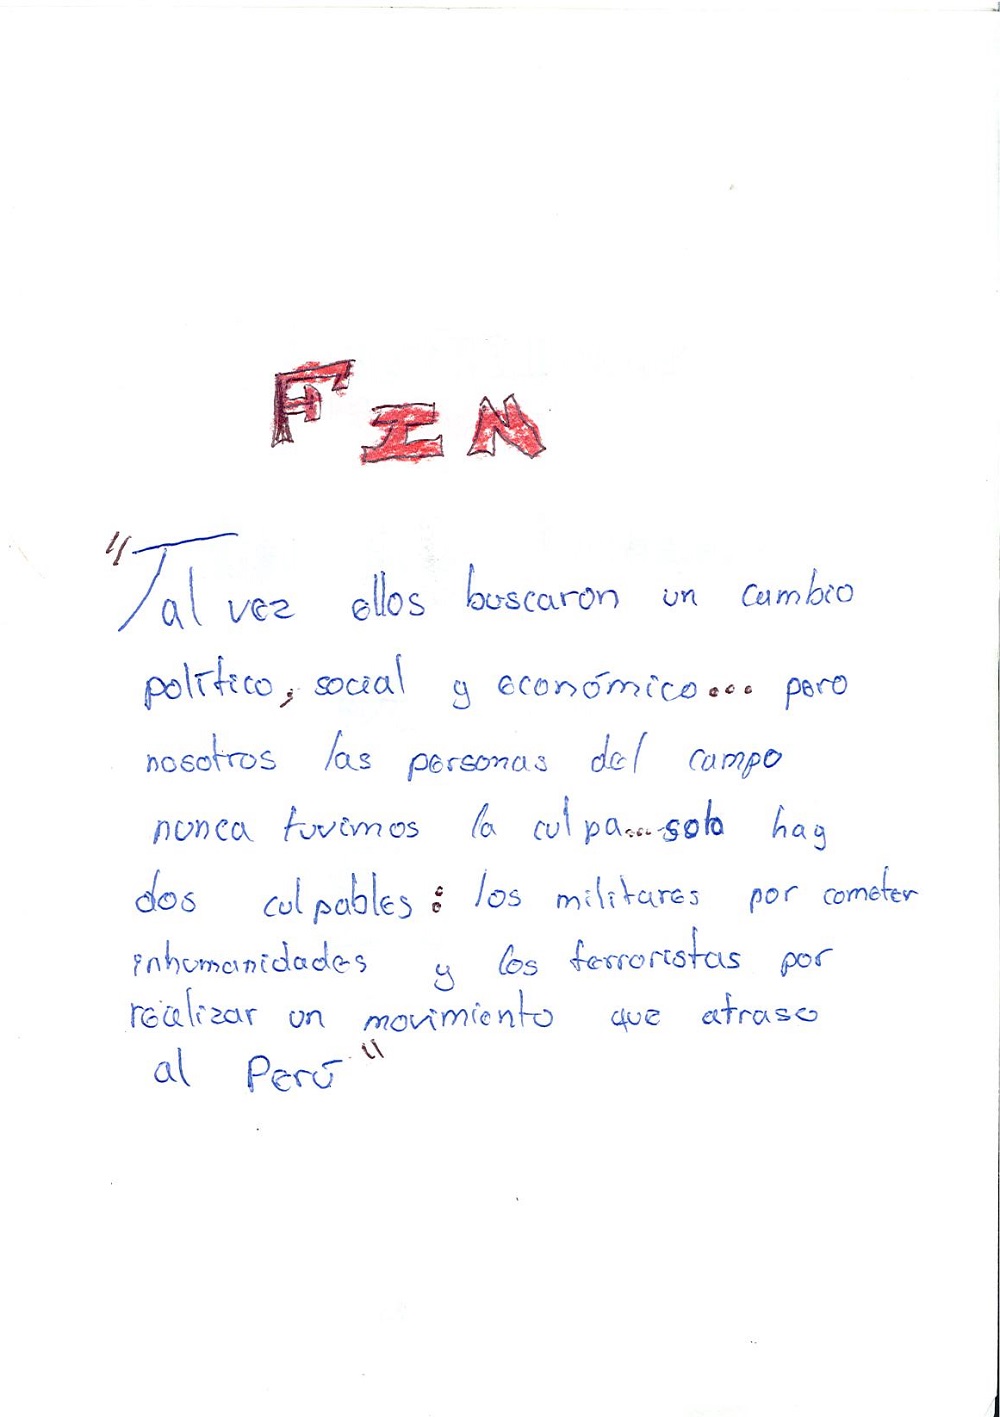 FIN
"Tal vez ellos buscaron un cambio
político, social y económico... pero
nosotros las personas del campo
nunca tuvimos la culpa.... solo hay
dos culpables: los militares por cometer
inhumanidades y los terroristas por
realizar un movimiento que atraso
al Perú"